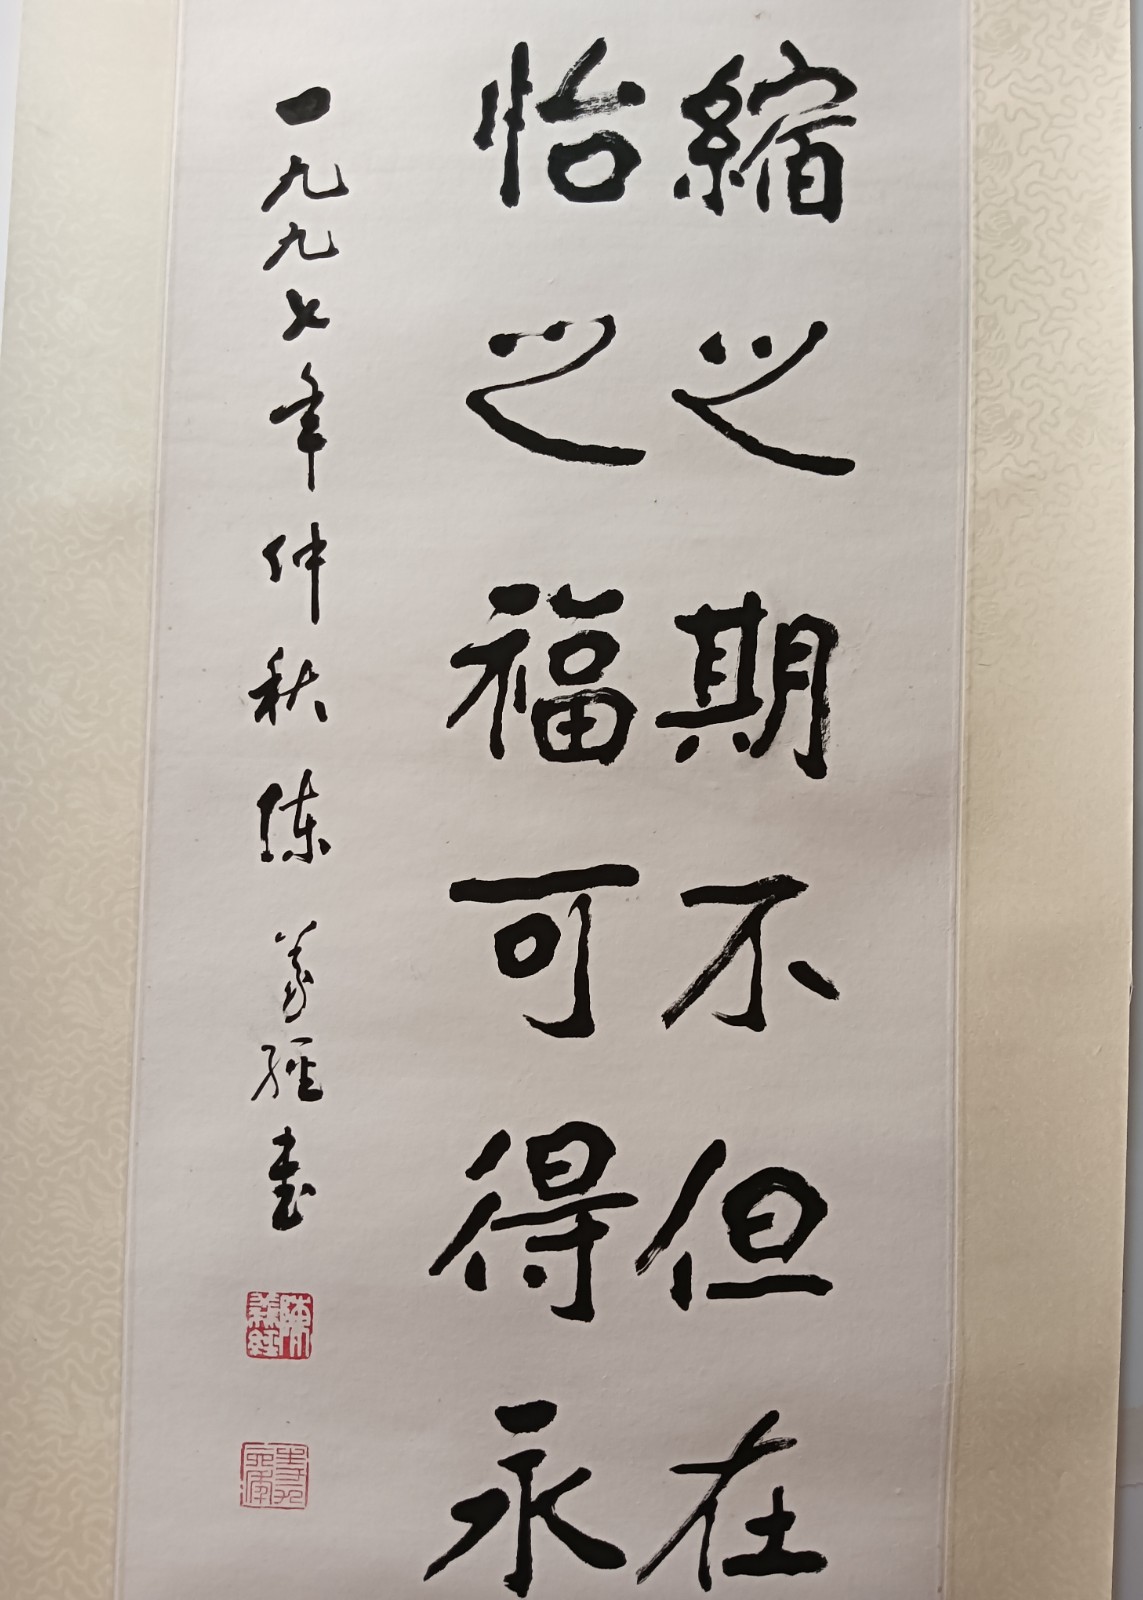 縮之期不但在
怡之福可得永
一九九七年仲秋陳義經書
陳義經